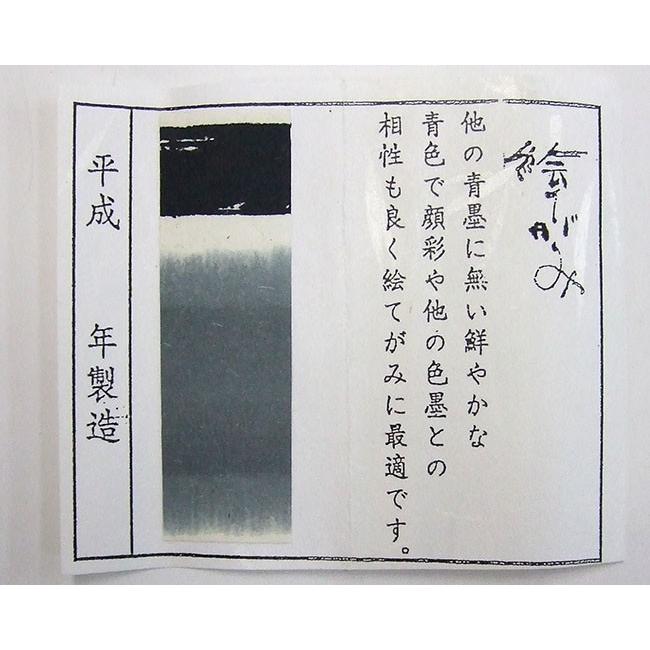 絵てがみ
他の青墨に無い鮮やかな
青色で顔彩や他の色墨との
相性も良く絵てがみに最適です。
平成　　年製造